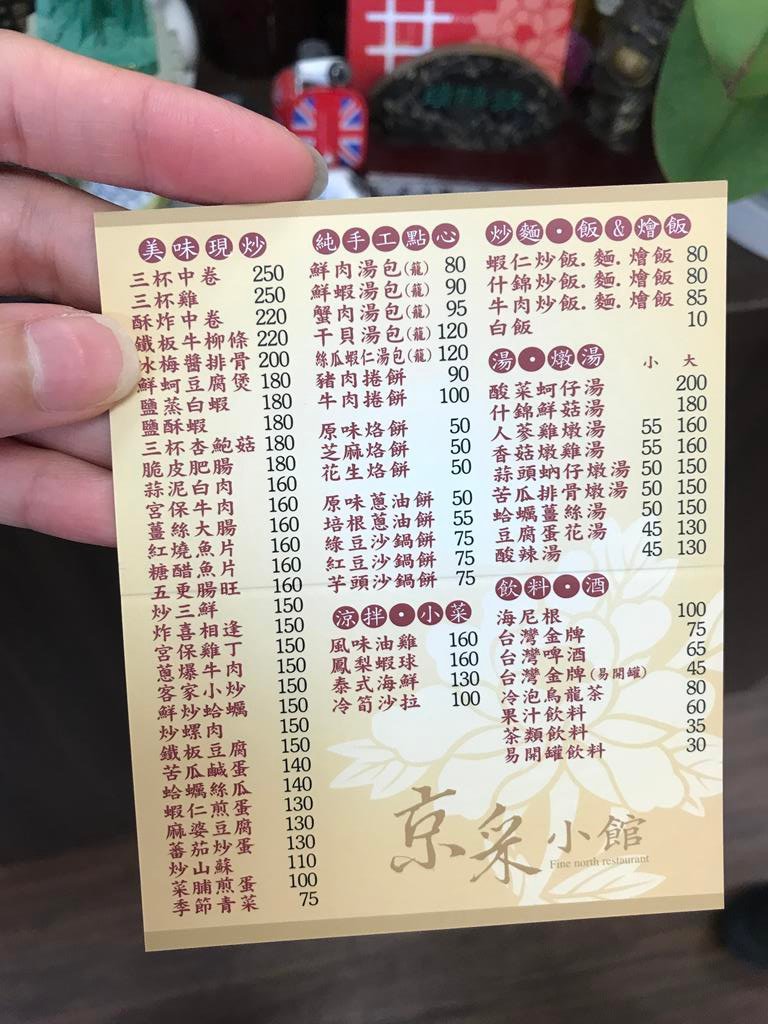 美味現炒
三杯中卷 250
三杯雞 250
酥炸中卷 220
鐵板牛柳條 220
冰梅醬排骨 200
鮮蚵豆腐煲 180
鹽蒸白蝦 180
鹽酥蝦 180
三杯杏鮑菇 180
脆皮肥腸 180
蒜泥白肉 160
宮保牛肉 160
薑絲大腸 160
紅燒魚片 160
糖醋魚片 160
五更腸旺 160
炒三鮮 150
炸喜相逢 150
宮保雞丁 150
蔥爆牛肉 150
客家小炒 150
鮮炒蛤蠣 150
炒螺肉 150
鐵板豆腐 150
苦瓜鹹蛋 140
蛤蠣絲瓜 140
蝦仁煎蛋 130
麻婆豆腐 130
蕃茄炒蛋 130
炒山蘇 110
菜脯煎蛋 100
季節青菜 75
純手工點心
鮮肉湯包(籠) 80
鮮蝦湯包(籠) 90
蟹肉湯包(籠) 95
干貝湯包(籠) 120
絲瓜蝦仁湯包(籠) 120
豬肉捲餅 90
牛肉捲餅 100
原味烙餅 50
芝麻烙餅 50
花生烙餅 50
原味蔥油餅 50
培根蔥油餅 55
綠豆沙鍋餅 75
紅豆沙鍋餅 75
芋頭沙鍋餅 75
涼拌•小菜
風味油雞 160
鳳梨蝦球 160
泰式海鮮 130
冷筍沙拉 100
炒麵•飯&燴飯
蝦仁炒飯.麵.燴飯 80
什錦炒飯.麵.燴飯 80
牛肉炒飯.麵.燴飯 85
白飯 10
湯•燉湯 小 大
酸菜蚵仔湯 200
什錦鮮菇湯 180
人蔘雞燉湯 55 160
香菇燉雞湯 55 160
蒜頭蚋仔燉湯 50 150
苦瓜排骨燉湯 50 150
蛤蠣薑絲湯 50 150
豆腐蛋花湯 45 130
酸辣湯 45 130
飲料•酒
海尼根 100
台灣金牌 75
台灣啤酒 65
台灣金牌(易開罐) 45
冷泡烏龍茶 80
果汁飲料 60
茶類飲料 35
易開罐飲料 30
京采小館
Fine north restaurant